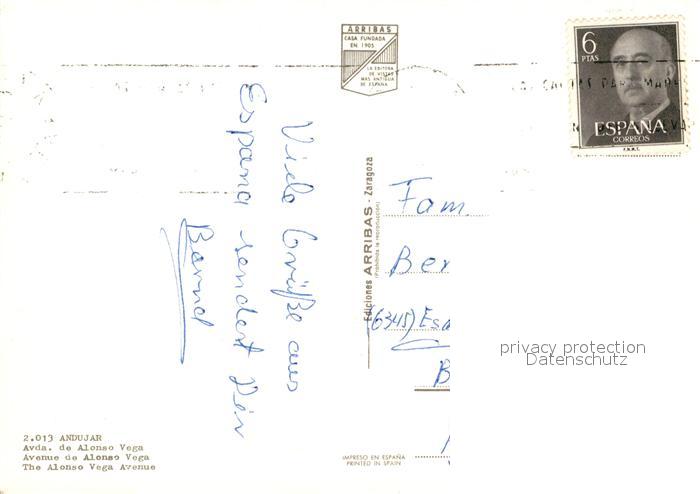 ARRIBAS
CASA FUNDADA
EN 1905
LA EDITORA
DE VISTAS
MAS ANTIGUA
DE ESPAÑA
6
PTAS
ESPAÑA
CORREOS
F.N.M.T.
Viele Grüße aus
Espana sendet Dir
Bernd
Ediciones ARRIBAS - Zaragoza
(Prohibida la reproducción)
Fam.
Ber
(6345) Es
B
privacy protection
Datenschutz
2.013 ANDUJAR
Avda. de Alonso Vega
Avenue de Alonso Vega
The Alonso Vega Avenue
IMPRESO EN ESPAÑA
PRINTED IN SPAIN